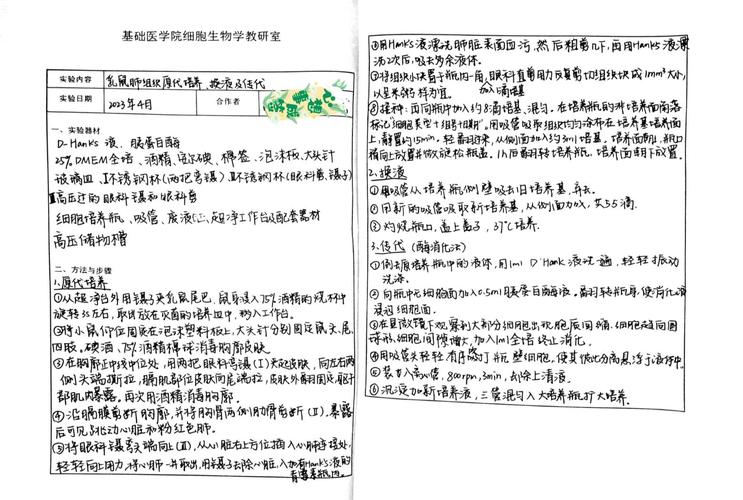 基础医学院细胞生物学教研室
实验内容 乳鼠肺组织原代培养、换液及传代
实验日期 2023年4月 合作者
一、实验器材
D-Hank's 液、胰蛋白酶
25% DMEM全培、酒精、碘、棉签、泡沫板、大头针
玻璃皿、I不锈钢杯(两把弯镊)、II不锈钢杯(眼科剪、镊子)
III高压过的眼科镊和眼科剪
细胞培养瓶、吸管、废液缸、超净工作台及配套器材
高压储物槽
二、方法与步骤
1.原代培养
①从超净台外用镊子夹乳鼠尾巴,鼠身浸入75%酒精的烧杯中
旋转3s左右,取出放在灭菌的培养皿中,移入工作台。
②将小鼠仰位固定在泡沫塑料板上,大头针分别固定鼠头、尾、
四肢。碘酒、75%酒精棉球消毒胸廓皮肤
③在胸廓正中线中位处,用两把眼科弯镊(I)夹起皮肤,向左右两
侧头端撕拉,膈肌部位皮肤向尾端拉,皮肤外翻固定,躯干
部肌肉暴露。再次用酒精消毒胸廓。
④沿膈膜剪断胸廓,并将胸骨两侧肋骨剪断(II),暴露
后可见跳动心脏和粉红色肺。
⑤将眼科镊弯头端向上(III),从心脏右上方位插入心肺连接处,
轻轻向上用力,将心肺一并取出,用镊子去除心脏,入加有Hank's液的
青霉素瓶内。
①用Hank's液漂洗肺脏表面血污,然后粗剪几下,再用Hank's液漂
洗2次后,吸去多余液体。
②将组织小块置于瓶内一角,眼科直剪用力反复剪切组织块成1mm³大小,
以呈米糊样为宜。 加入1滴培基
③接种:再向瓶中加入约8滴培基,混匀。在培养瓶的非培养面角落
标记"细胞类型+组号+日期"。用吸管吸取组织均匀涂布在培养基培养面
上,静置约15min,轻翻过来,从侧面加入约3ml培基,培养面朝上,瓶口
稍向上放置并做旋松瓶盖。1h后翻转培养瓶,培养面朝下放置。
2.换液
①用吸管从培养瓶侧壁吸去旧培养基,弃去。
②用新的吸管吸取新培养基,从侧面加入,共55滴。
③灼烧瓶口,盖上盖子,37℃培养.
3.传代 (酶消化法)
①倒去原培养瓶中的液体,用1ml D'Hank液洗一遍,轻轻振动
洗涤。
②向瓶中无细胞面加入0.5ml胰蛋白酶液。翻转瓶身,使消化液
浸没细胞面.
③在显微镜下观察到大部分细胞出现胞质回缩、细胞趋向圆
球形,细胞间隙增大,加入1ml全培终止消化.
④用吸管头轻轻有序吹打瓶壁细胞,使其彼此分离悬浮于液体中.
⑤装入离心管,800rpm,3min,去除上清液.
⑥沉淀加新培养液,三管混匀入大培养瓶扩大培养.